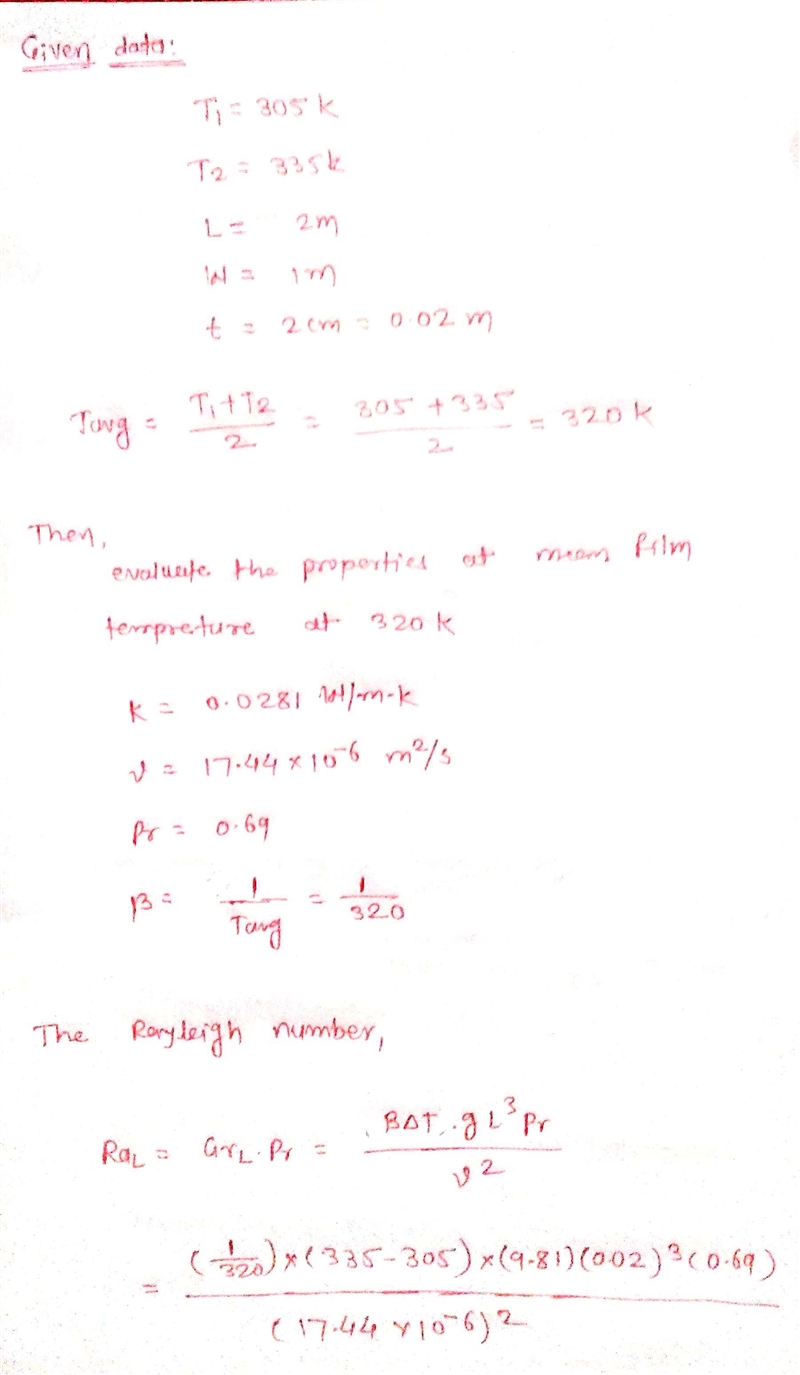 Given data:
T₁ = 305 k
T2 = 335k
L = 2m
W = 1m
t = 2cm = 0.02 m
Tavg = T₁+T2 / 2 = 305 + 335 / 2 = 320 k
Then,
evaluate the properties at mean film
tempreture at 320 k
K = 0.0281 W/m-k
ν = 17.44 × 10⁻⁶ m²/s
Pr = 0.69
β = 1 / Tavg = 1 / 320
The Rayleigh number,
Ra_L = Gr_L . Pr = BΔT . g L³ Pr / ν2
= (1/320) × (335 - 305) × (9.81) (002)³ (0.69) / (17.44 × 10⁻⁶)²